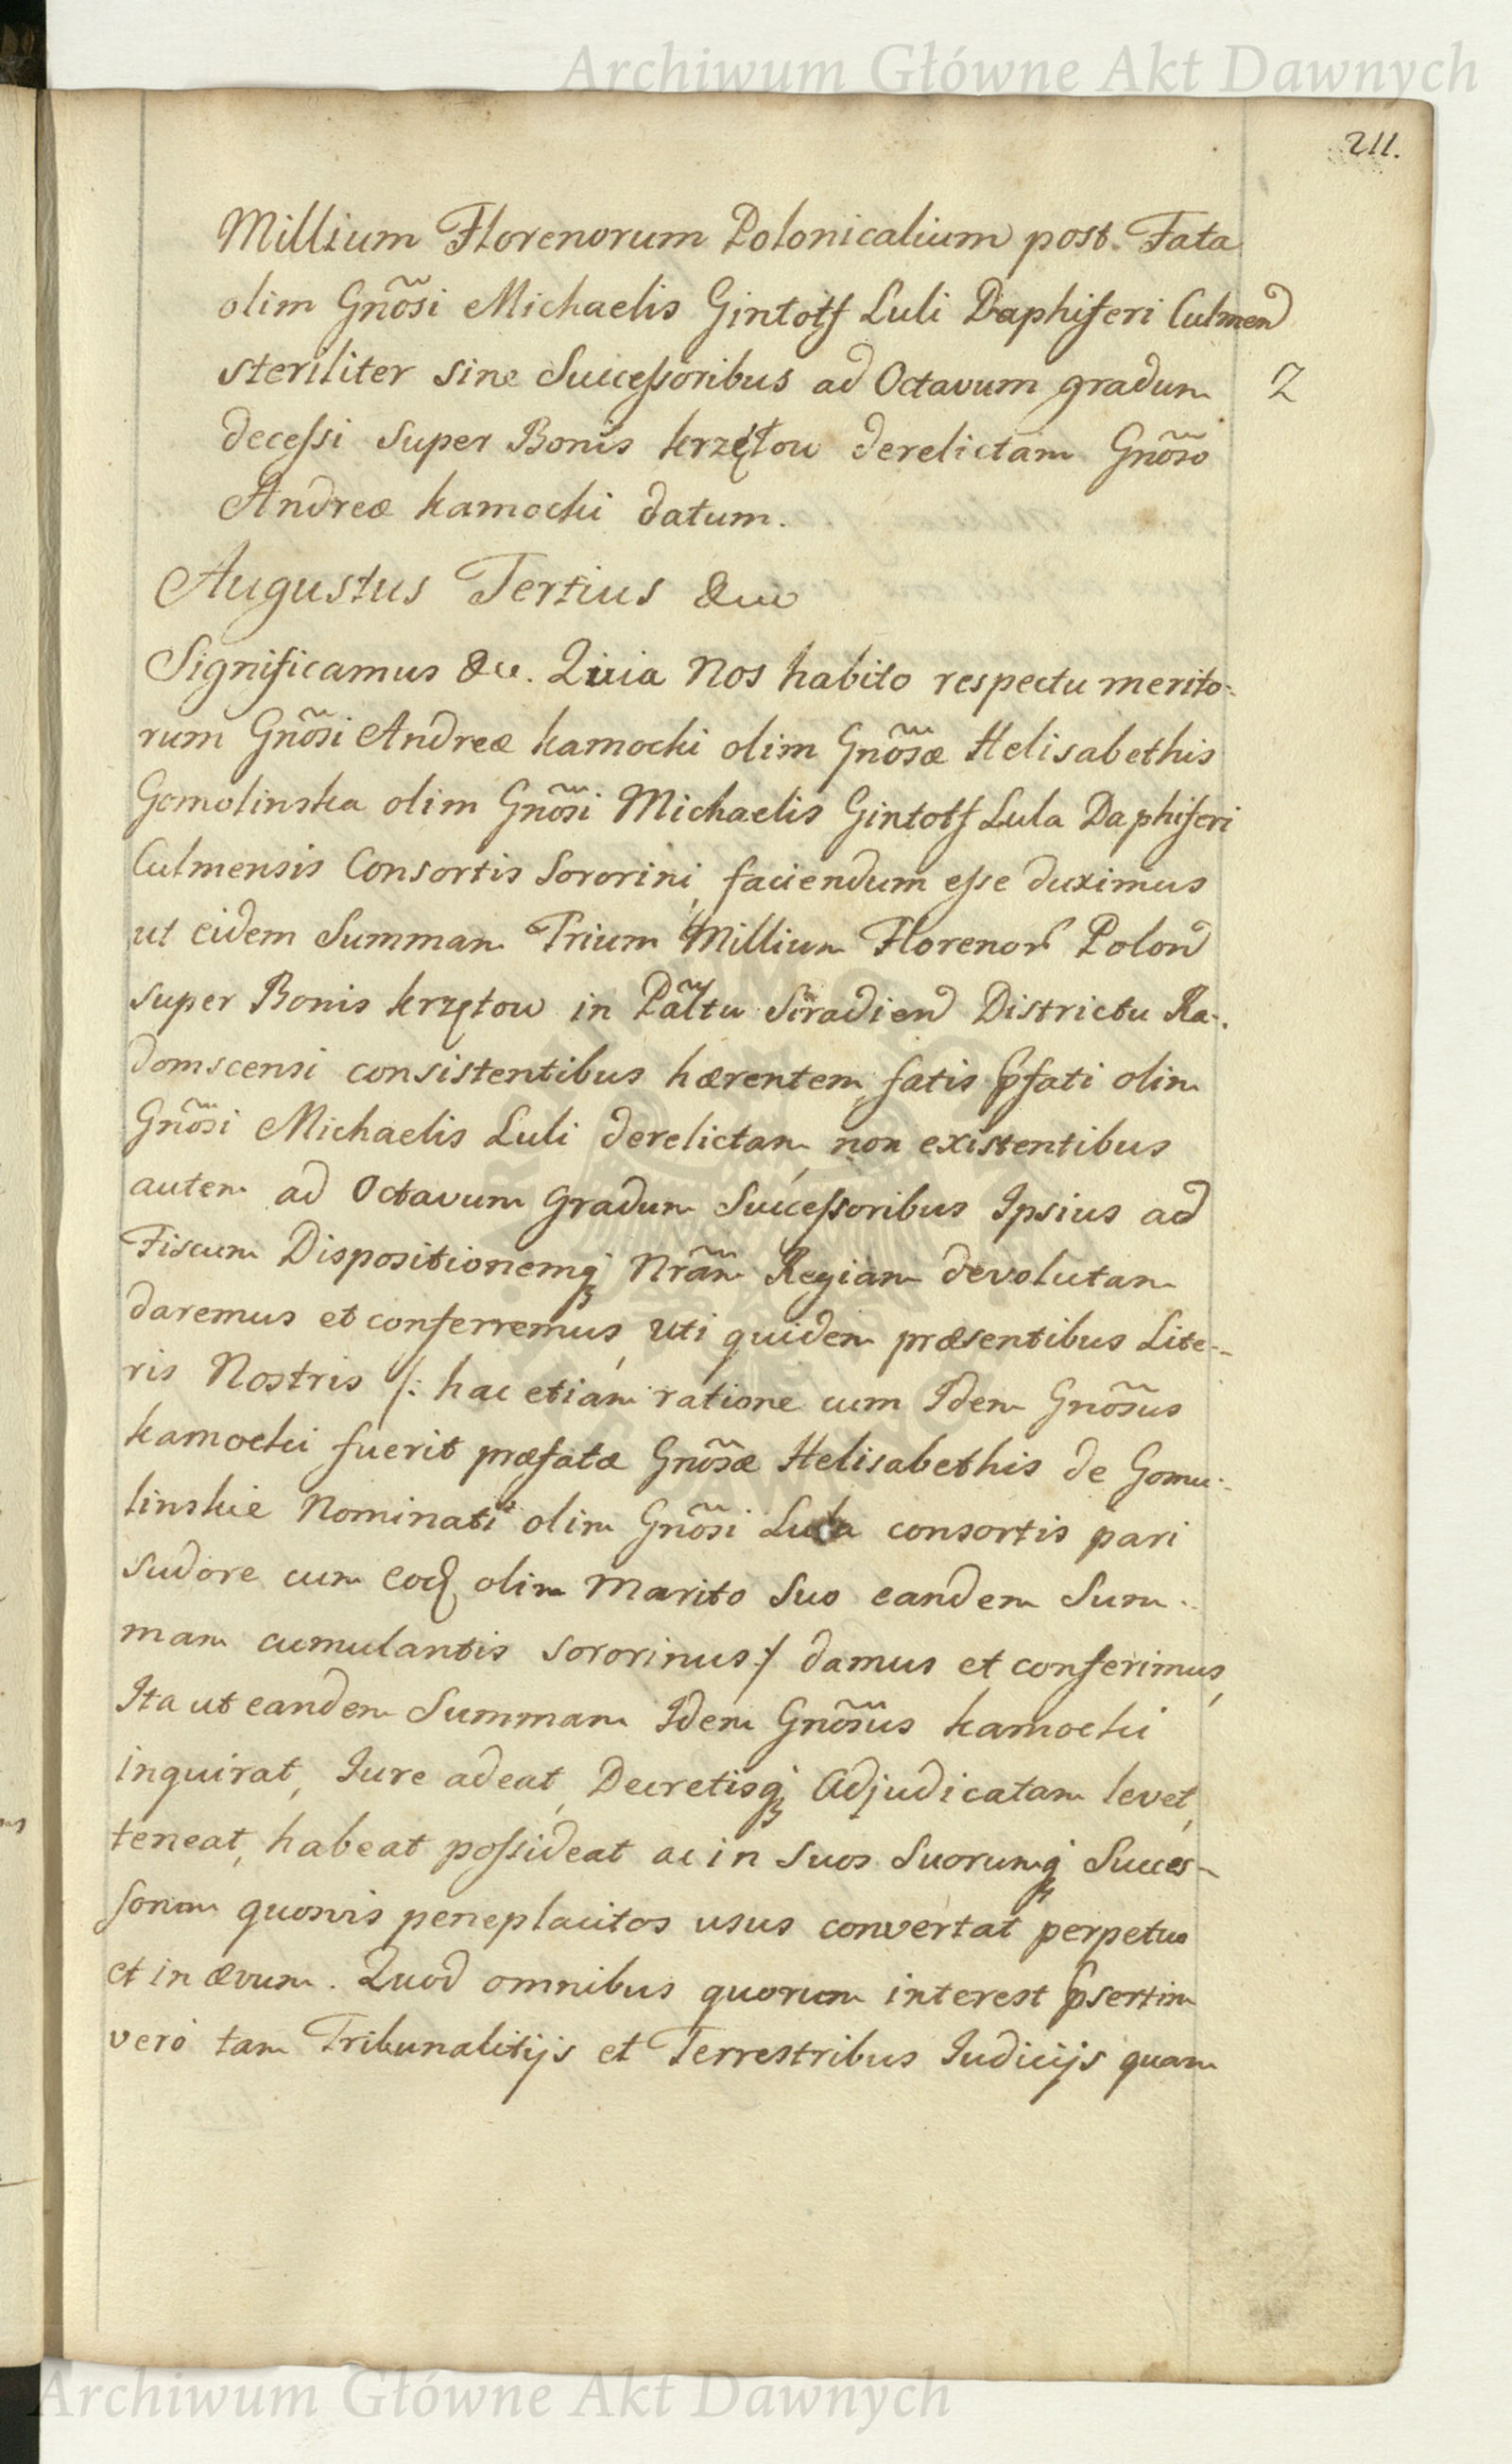 Archiwum Główne Akt Dawnych
211.
Millium Florenorum Polonicalium post Fata
olim Gnõsi Michaelis Gintoft Luli Daphiferi Culmen
steriliter sine Successoribus ad Octavum gradum
2
decessi super Bonis Krzętow derelictam Gnõso
Andreæ Kamocki datum.
Augustus Tertius &cc
Significamus &c. Quia Nos habito respectu merito-
rum Gnõsi Andreæ Kamocki olim Gnõsæ Helisabethis
Gomolinska olim Gnõsi Michaelis Gintoft Lula Daphiferi
Culmensis Consortis Sororini, faciendum esse duximus
ut eidem Summam Trium Millium Florenor Polon
super Bonis Krzętow in Pãltu Siradien Districtu Ra-
domscensi consistentibus hærentem, fatis pfati olim
Gnõsi Michaelis Luli derelictam, non existentibus
autem ad Octavum Gradum Successoribus Ipsius ad
Fiscum Dispositionemq Nrãm Regiam devolutam
daremus et conferremus, uti quidem præsentibus Lite-
ris Nostris /: hac etiam ratione cum Idem Gnõsus
Kamocki fuerit præfatæ Gnõsæ Helisabethis de Gomu-
linskie Nominati olim Gnõsi Lula consortis pari
sudore cum eod olim Marito Suo eandem Sum-
mam cumulantis sororinus :/ damus et conferimus,
Ita ut eandem Summam Idem Gnõsus Kamocki
inquirat, Jure adeat, Decretisq Adjudicatam levet,
teneat, habeat possideat ac in Suos Suorumq Succes-
sorum quosvis peneplacitos usus convertat perpetuo
et in ævum. Quod omnibus quorum interest psertim
vero tam Tribunalitijs et Terrestribus Judicijs quam
Archiwum Główne Akt Dawnych